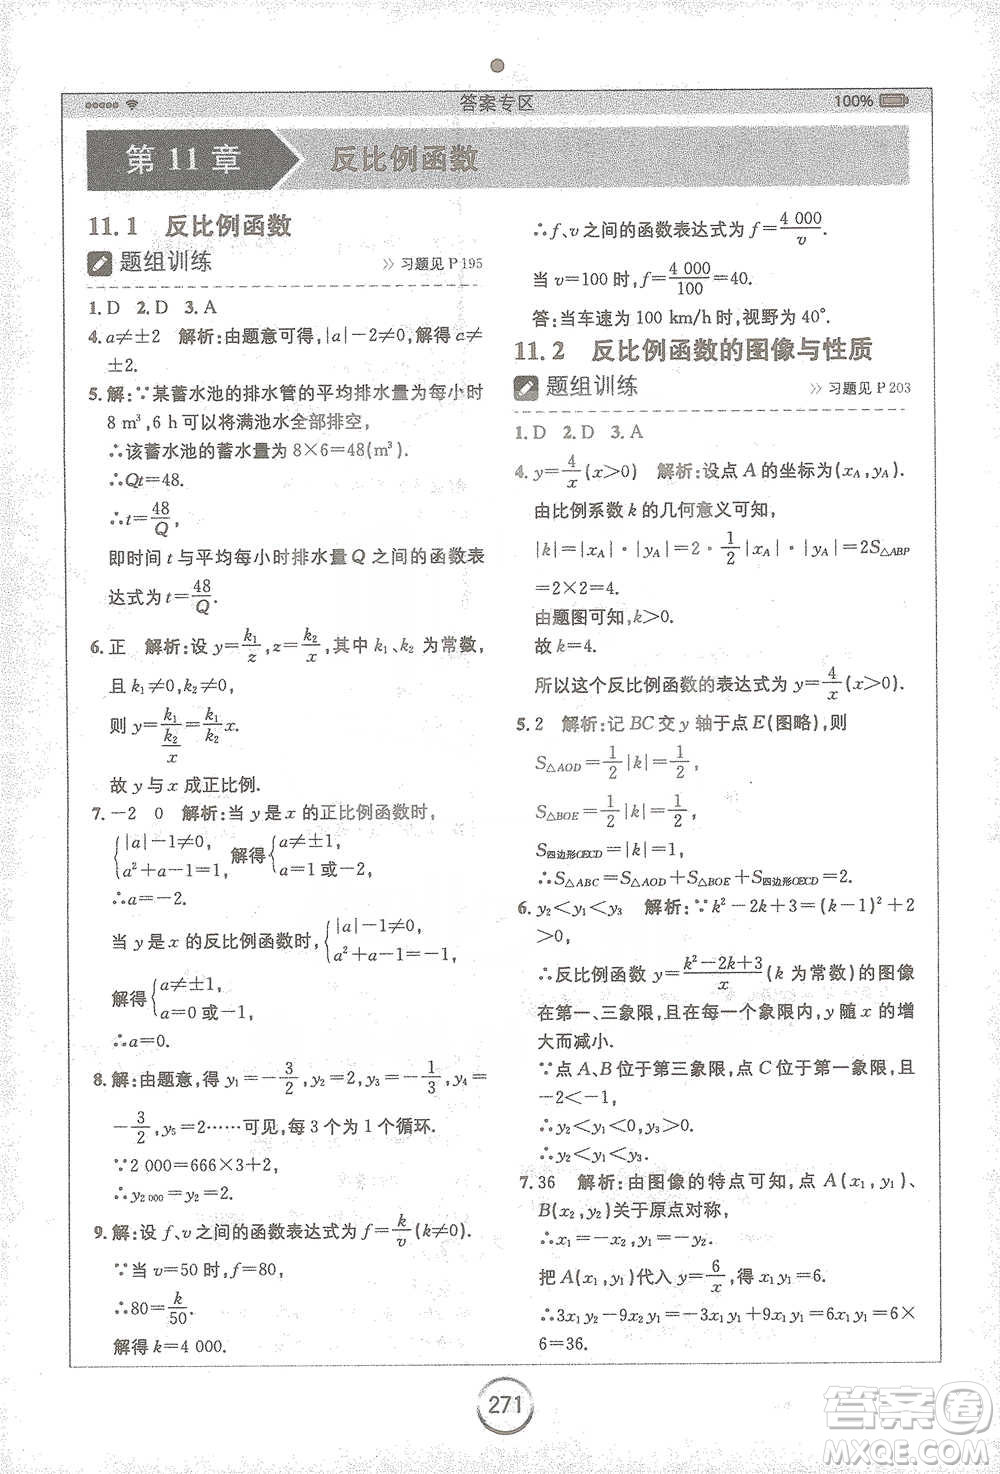 答案专区
100%
第 11 章
反比例函数
11.1 反比例函数
题组训练
>> 习题见 P 195
1. D 2. D 3. A
4. a≠±2 解析:由题意可得,|a|-2≠0,解得 a≠
±2.
5. 解:∵某蓄水池的排水管的平均排水量为每小时
8 m³,6 h 可以将满池水全部排空,
∴该蓄水池的蓄水量为 8×6=48(m³).
∴Qt=48.
∴t=48/Q,
即时间 t 与平均每小时排水量 Q 之间的函数表
达式为 t=48/Q.
6. 正 解析:设 y=k₁/z,z=k₂/x,其中 k₁、k₂ 为常数,
且 k₁≠0,k₂≠0,
则 y=k₁/(k₂/x)=(k₁/k₂)x.
故 y 与 x 成正比例.
7. -2 0 解析:当 y 是 x 的正比例函数时,
{|a|-1≠0, a²+a-1=1, 解得{a≠±1, a=1 或-2.
∴a=-2.
当 y 是 x 的反比例函数时,{|a|-1≠0, a²+a-1=-1,
解得{a≠±1, a=0 或-1.
∴a=0.
8. 解:由题意,得 y₁=-3/2,y₂=2,y₃=-1/3,y₄=
-3/2,y₅=2……可见,每 3 个为 1 个循环.
∵2 000=666×3+2,
∴y₂ ₀₀₀=y₂=2.
9. 解:设 f、v 之间的函数表达式为 f=k/v(k≠0).
∵当 v=50 时,f=80,
∴80=k/50.
解得 k=4 000.
∴f、v 之间的函数表达式为 f=4 000/v.
当 v=100 时,f=4 000/100=40.
答:当车速为 100 km/h 时,视野为 40°.
11.2 反比例函数的图像与性质
题组训练
>> 习题见 P 203
1. D 2. D 3. A
4. y=4/x(x>0) 解析:设点 A 的坐标为(x_A,y_A),
由比例系数 k 的几何意义可知,
|k|=|x_A|·|y_A|=2·1/2|x_A|·|y_A|=2S△ABP
=2×2=4.
由题图可知,k>0.
故 k=4.
所以这个反比例函数的表达式为 y=4/x(x>0).
5. 2 解析:记 BC 交 y 轴于点 E(图略),则
S△AOD=1/2|k|=1/2,
S△BOE=1/2|k|=1/2,
S四边形OECD=|k|=1,
∴S△ABC=S△AOD+S△BOE+S四边形OECD=2.
6. y₂<y₁<y₃ 解析:∵k²-2k+3=(k-1)²+2
>0,
∴反比例函数 y=(k²-2k+3)/x(k 为常数)的图像
在第一、三象限,且在每一个象限内,y 随 x 的增
大而减小.
∵点 A、B 位于第三象限,点 C 位于第一象限,且
-2<-1,
∴y₂<y₁<0,y₃>0.
∴y₂<y₁<y₃.
7. 36 解析:由图像的特点可知,点 A(x₁,y₁)、
B(x₂,y₂)关于原点对称,
∴x₁=-x₂,y₁=-y₂.
把 A(x₁,y₁)代入 y=6/x,得 x₁y₁=6.
∴3x₁y₂-9x₂y₁=-3x₁y₁+9x₁y₁=6x₁y₁=6×
6=36.
271
答案圈
MXQE.COM